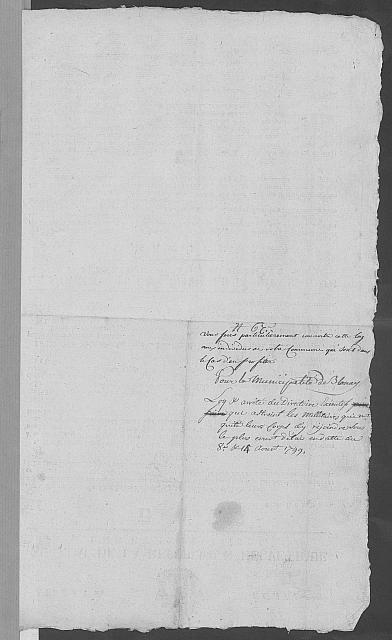 Vous ferés particulièrement connaitre cette loy
aux individus de votre Commune qui sont dans
le Cas d'en profiter
Pour la Municipalité de Blonay
Loy & arrêté du Directoire Executif
que astreint les Militaires qui ont
quité leurs Corps d'y rejoindre sous
le plus court délai en datte du
8e & 14 Aoust 1799.